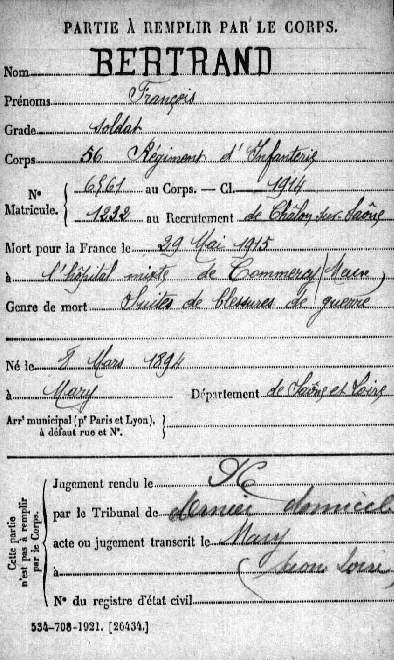 PARTIE À REMPLIR PAR LE CORPS.
Nom BERTRAND
Prénoms François
Grade soldat
Corps 56 Régiment d'Infanterie
N° Matricule. { 6561 au Corps. — Cl. 1914
1232 au Recrutement de Châlon-sur-Saône
Mort pour la France le 29 Mai 1915
à l'hôpital mixte de Commercy (Meuse)
Genre de mort Suites de blessures de guerre
Né le 8 Mars 1894
à Mary Département de Saône et Loire
Arrt municipal (pr Paris et Lyon), à défaut rue et N°. }
Cette partie n'est pas à remplir par le Corps.
Jugement rendu le
par le Tribunal de dernier domicile
acte ou jugement transcrit le Mary
à (Saône Loire
N° du registre d'état civil
534-708-1921. [26434.]